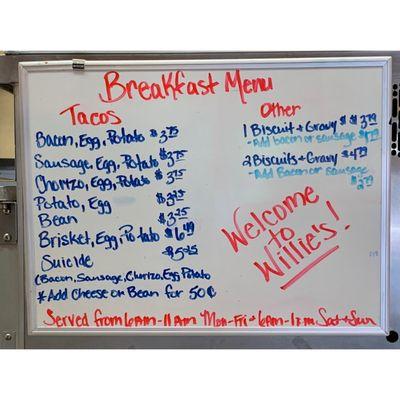 Breakfast Menu
Tacos
Bacon, Egg, Potato $3.75
Sausage, Egg, Potato $3.75
Chorizo, Egg, Potato $3.75
Potato, Egg $3.25
Bean $3.25
Brisket, Egg, Potato $6.49
Suicide
(Bacon, Sausage, Chorizo, Egg Potato
*Add Cheese or Bean for 50¢
Other
1 Biscuit + Gravy
-Add bacon or sausage
2 Biscuits + Gravy $4.79
-Add Bacon or sausage
$2.79
Welcome
to
Willie's!
Served from 6AM-11AM Mon-Fri + 6AM-12PM Sat + Sun